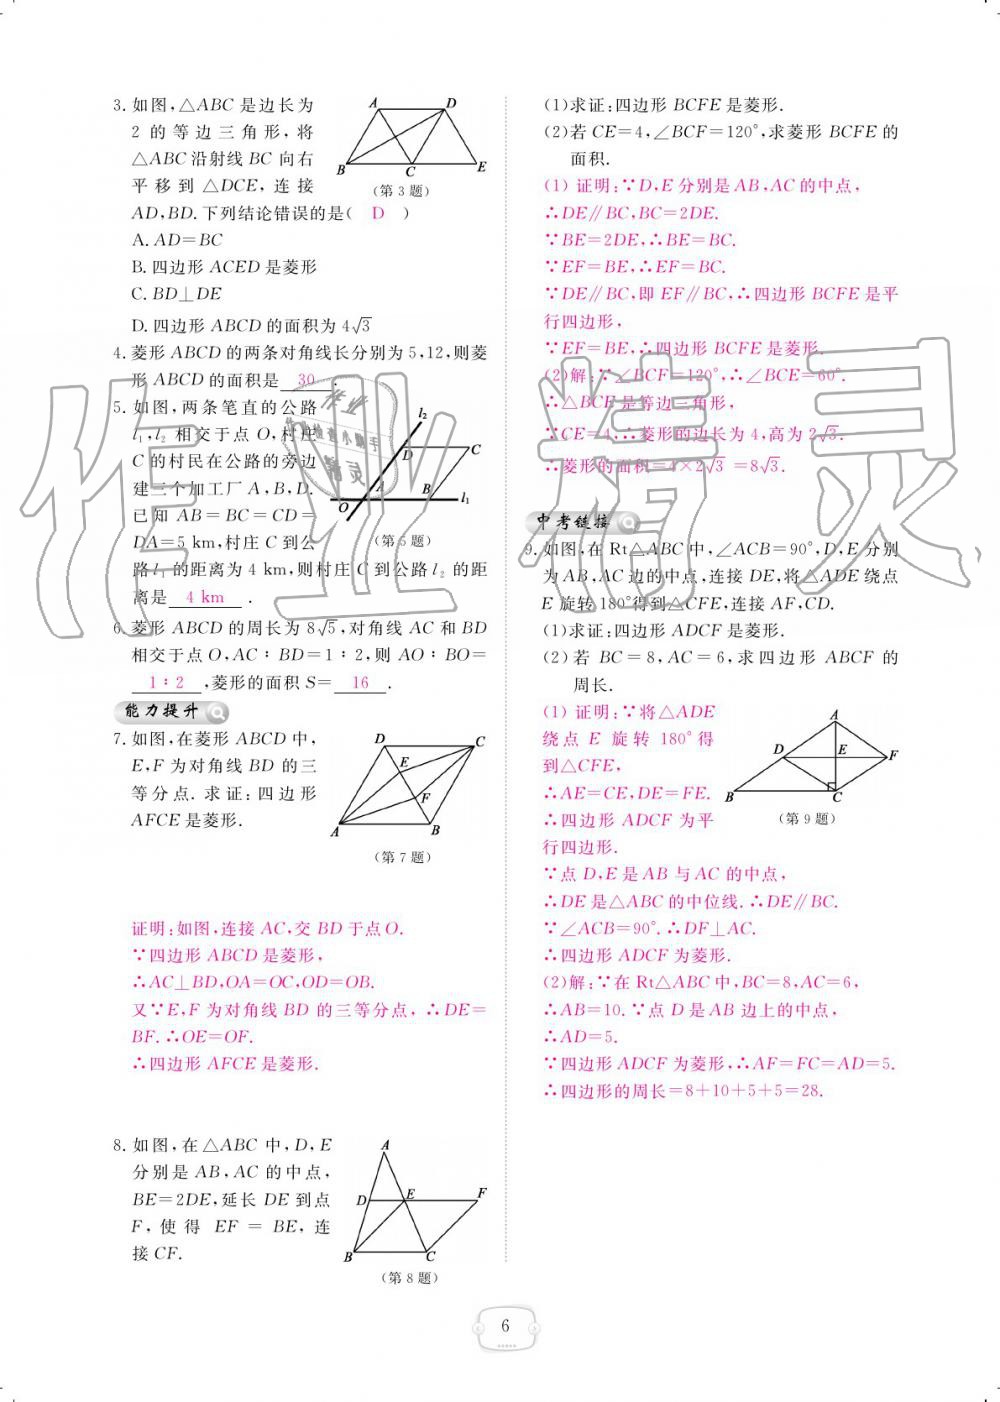 3. 如图,△ABC 是边长为
2 的等边三角形,将
△ABC 沿射线 BC 向右
平移到 △DCE,连接
AD,BD.下列结论错误的是( D )
A. AD=BC
B. 四边形 ACED 是菱形
C. BD⊥DE
D. 四边形 ABCD 的面积为 4√3
A
D
B
C
E
(第 3 题)
4. 菱形 ABCD 的两条对角线长分别为 5,12,则菱
形 ABCD 的面积是 30 .
5. 如图,两条笔直的公路
l₁,l₂ 相交于点 O,村庄
C 的村民在公路的旁边
建三个加工厂 A,B,D.
已知 AB=BC=CD=
DA=5 km,村庄 C 到公
路 l₁ 的距离为 4 km,则村庄 C 到公路 l₂ 的距
离是 4 km .
l₂
D
C
A
B
l₁
O
(第 5 题)
6. 菱形 ABCD 的周长为 8√5,对角线 AC 和 BD
相交于点 O,AC∶BD=1∶2,则 AO∶BO=
1∶2 ,菱形的面积 S= 16 .
能力提升
7. 如图,在菱形 ABCD 中,
E,F 为对角线 BD 的三
等分点. 求证:四边形
AFCE 是菱形.
D
C
E
F
A
B
(第 7 题)
证明:如图,连接 AC,交 BD 于点 O.
∵四边形 ABCD 是菱形,
∴AC⊥BD,OA=OC,OD=OB.
又∵E,F 为对角线 BD 的三等分点,∴DE=
BF.∴OE=OF.
∴四边形 AFCE 是菱形.
8. 如图,在 △ABC 中,D,E
分别是 AB,AC 的中点,
BE=2DE,延长 DE 到点
F,使得 EF = BE,连
接 CF.
A
D
E
F
B
C
(第 8 题)
(1)求证:四边形 BCFE 是菱形.
(2)若 CE=4,∠BCF=120°,求菱形 BCFE 的
面积.
(1) 证明:∵D,E 分别是 AB,AC 的中点,
∴DE∥BC,BC=2DE.
∵BE=2DE,∴BE=BC.
∵EF=BE,∴EF=BC.
∵DE∥BC,即 EF∥BC,∴四边形 BCFE 是平
行四边形,
∵EF=BE,∴四边形 BCFE 是菱形.
(2)解:∵∠BCF=120°,∴∠BCE=60°.
∴△BCE 是等边三角形,
∵CE=4,∴菱形的边长为 4,高为 2√3.
∴菱形的面积=4×2√3 =8√3.
中考链接
9. 如图,在 Rt△ABC 中,∠ACB=90°,D,E 分别
为 AB,AC 边的中点,连接 DE,将△ADE 绕点
E 旋转 180°得到△CFE,连接 AF,CD.
(1)求证:四边形 ADCF 是菱形.
(2)若 BC=8,AC=6,求四边形 ABCF 的
周长.
(1) 证明:∵将△ADE
绕点 E 旋转 180°得
到△CFE,
∴AE=CE,DE=FE.
∴四边形 ADCF 为平
行四边形.
A
D
E
F
B
C
(第 9 题)
∵点 D,E 是 AB 与 AC 的中点,
∴DE 是△ABC 的中位线.∴DE∥BC.
∵∠ACB=90°.∴DF⊥AC.
∴四边形 ADCF 为菱形.
(2)解:∵在 Rt△ABC 中,BC=8,AC=6,
∴AB=10.∵点 D 是 AB 边上的中点,
∴AD=5.
∵四边形 ADCF 为菱形,∴AF=FC=AD=5.
∴四边形的周长=8+10+5+5=28.
作业精灵
作业
作业检查小助手
精灵
6